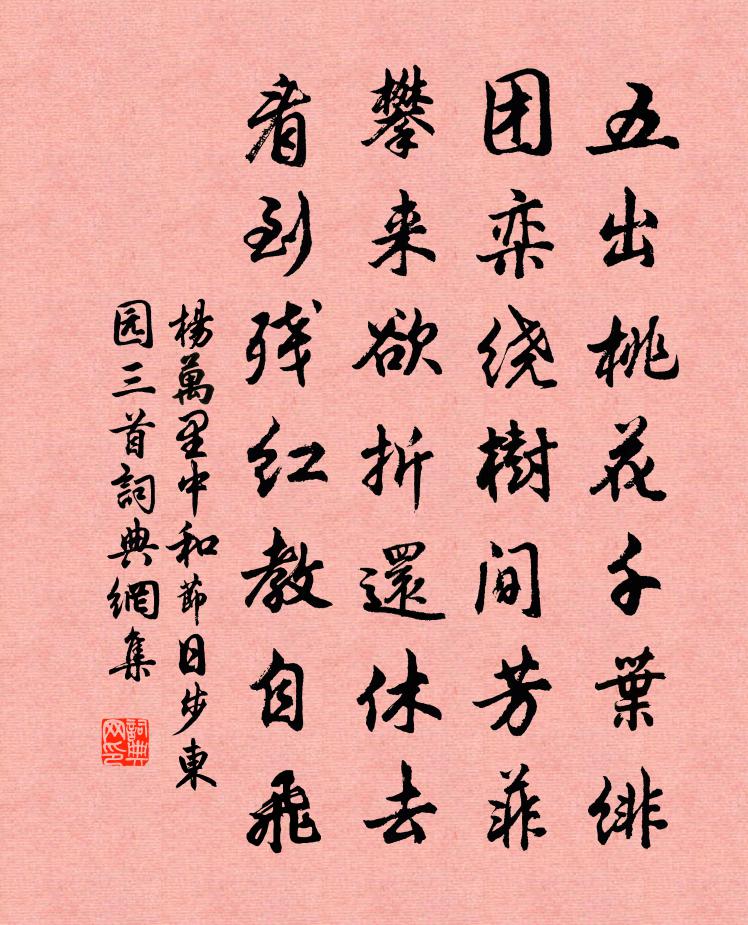 五出桃花千葉緋
团栾绕樹间芳菲
攀来欲折還休去
看到残红教自飛
楊萬里中和節日步東
园三首詞典網集
詞典网印